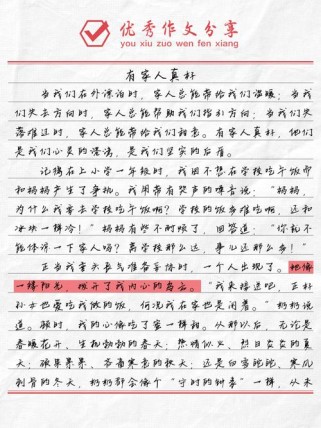 优秀作文分享
you xiu zuo wen fen xiang
有家人真好
当我们在外漂泊时，家人总能带给我们温暖；当我
们失去方向时，家人总能帮助我们指引方向；当我们失
落难过时，家人总能带给我们甜蜜。有家人真好，他们
是我们心灵的港湾，是我们坚实的后盾。
记得在上小学一年级时，我因不想在学校吃午饭而
和妈妈产生了争执。我用带有哭声的嗓音说：“妈妈，
为什么我要去学校吃午饭啊？学校的饭多难吃啊，还和
冰块一样冷！”妈妈有些不耐烦了，回答道：“你就不
能体谅一下家人吗？离学校那么远，事儿还那么多！”
正当我垂头丧气准备妥协时，一个人出现了。她像
一缕阳光，拨开了我内心的乌云。“我来接送吧，正好
孙女也爱吃我做的饭，何况我在家也是闲着。”奶奶说
道。顿时，我的心像吃了蜜一样甜。从那以后，无论是
春暖花开、生机勃勃的春天；热情似火、烈日炎炎的夏
天；硕果累累、五谷丰登的秋天；还是白雪皑皑、寒风
刺骨的冬天，奶奶都会像个“守时的钟表”一样，从未